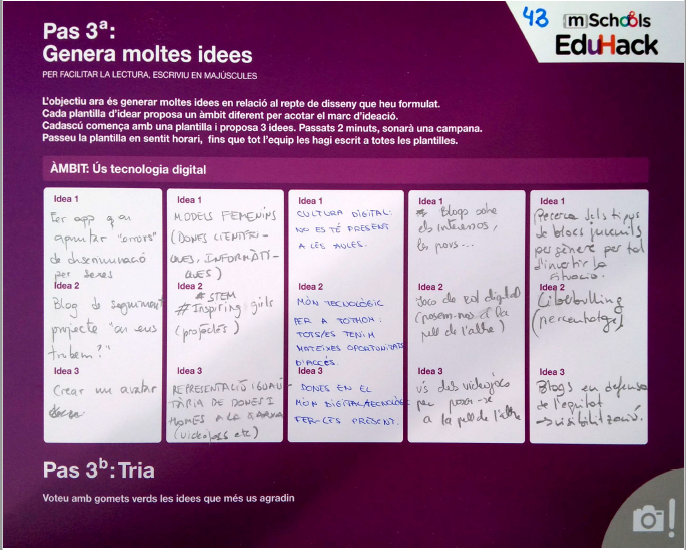 Pas 3ª:
Genera moltes idees
PER FACILITAR LA LECTURA, ESCRIVIU EN MAJÚSCULES
43
mSchools
EduHack
L'objectiu ara és generar moltes idees en relació al repte de disseny que heu formulat.
Cada plantilla d'idear proposa un àmbit diferent per acotar el marc d'ideació.
Cadascú comença amb una plantilla i proposa 3 idees. Passats 2 minuts, sonarà una campana.
Passeu la plantilla en sentit horari, fins que tot l'equip les hagi escrit a totes les plantilles.
ÀMBIT: Ús tecnologia digital
Idea 1
Fer app q en
apuntar "errors"
de discriminació
per sexes
Idea 2
Blog de seguiment
projecte "on ens
trobem?"
Idea 3
Crear un avatar
Idea 1
MODELS FEMENINS
(DONES CIENTÍFI-
QUES, INFORMÀTI-
QUES)
Idea 2
# STEM
# Inspiring girls
(projectes)
Idea 3
REPRESENTACIÓ IGUALI-
TÀRIA DE DONES I
HOMES A LA XARXA
(videojocs etc)
Idea 1
CULTURA DIGITAL:
NO ESTÉ PRESENT
A LES AULES.
Idea 2
MÓN TECNOLÒGIC
PER A TOTHOM:
TOTS/ES TENIM
MATEIXES OPORTUNITATS
D'ACCÉS.
Idea 3
DONES EN EL
MÓN DIGITAL/TECNOLÒGIC
FER-LES PRESENT.
Idea 1
Blogs sobre
els interessos,
les pors...
Idea 2
Joc de rol digital
(posem-nos a la
pell de l'altre)
Idea 3
ús dels videojocs
per posar-se
a la pell de l'altre
Idea 1
Recerca dels tipus
de blocs juvenils
per gènere per tal
d'invertir la
situació.
Idea 2
Ciberbulling
(percentatge)
Idea 3
Blogs en defensa
de l'equitat
→ visibilització.
Pas 3ᵇ: Tria
Voteu amb gomets verds les idees que més us agradin